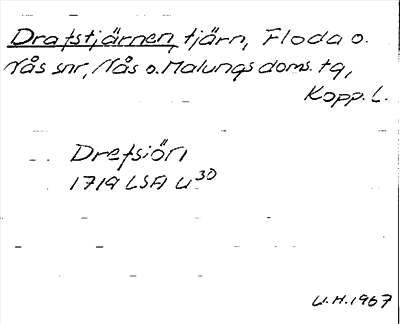 Drafstjärnen, tjärn, Floda o.
Nås snr, Nås o. Malungs doms. tg,
Kopp. l.
Drefsiön
1719 LSA U 30
U.H. 1967